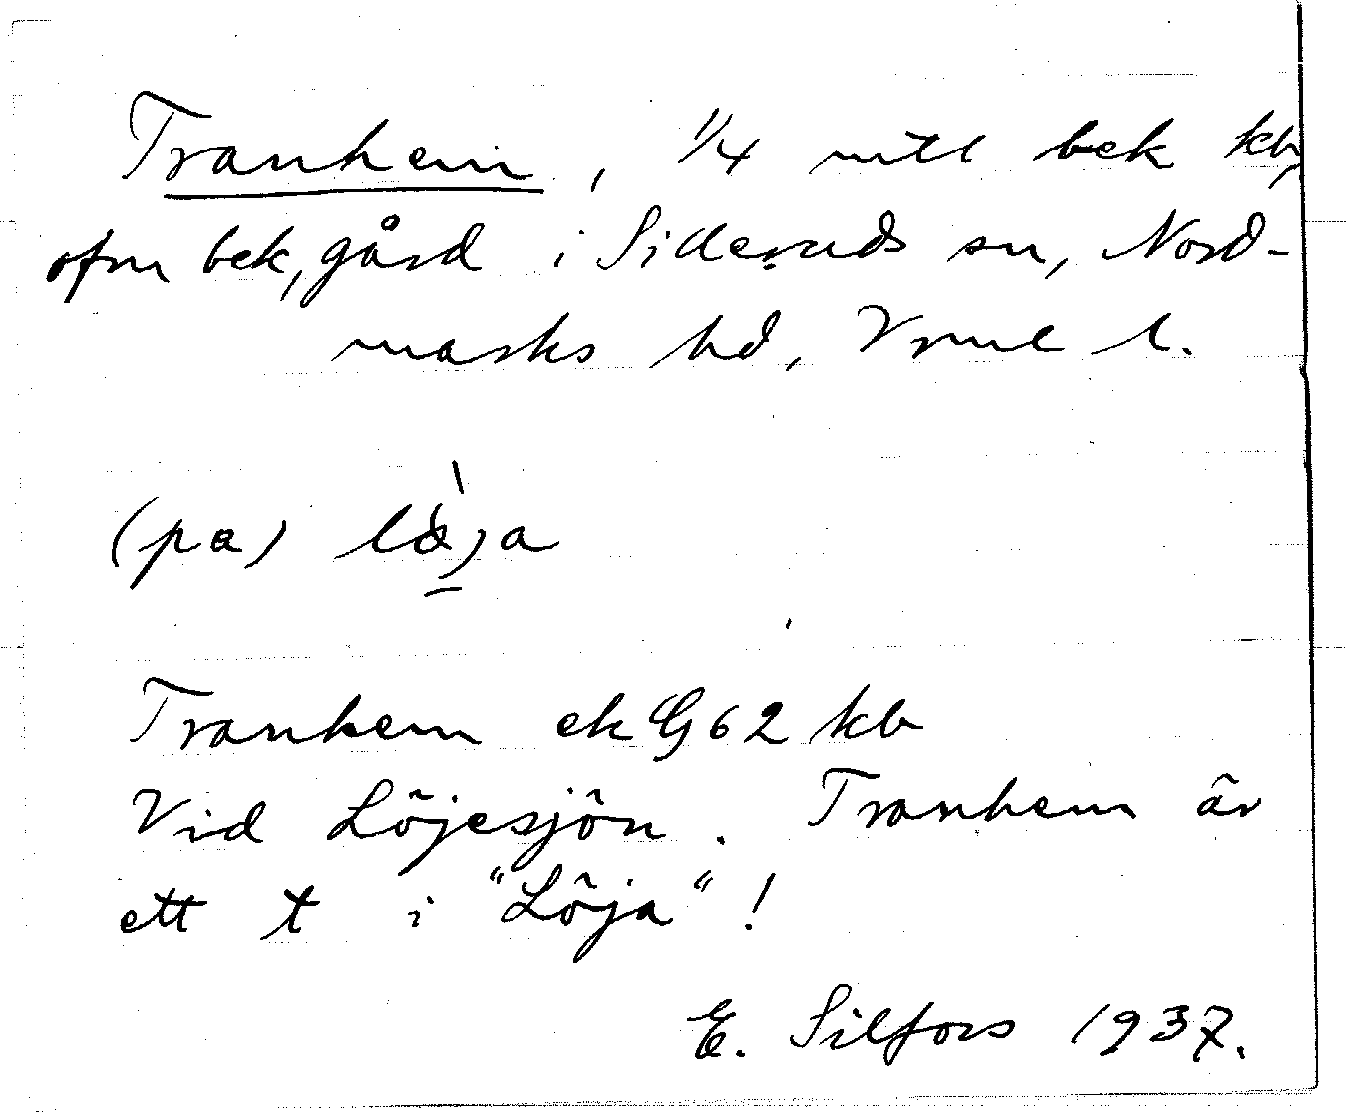 Tranhem, 1/4 mtl bek kb,
ofm bek, gård i Sileruds sn, Nord-
marks hd, Vrml l.
(pa) lö̀ja
Tranhem ek G62 kb
Vid Löjesjön. Tranhem är
ett t i "Löja"!
E. Silfors 1937.